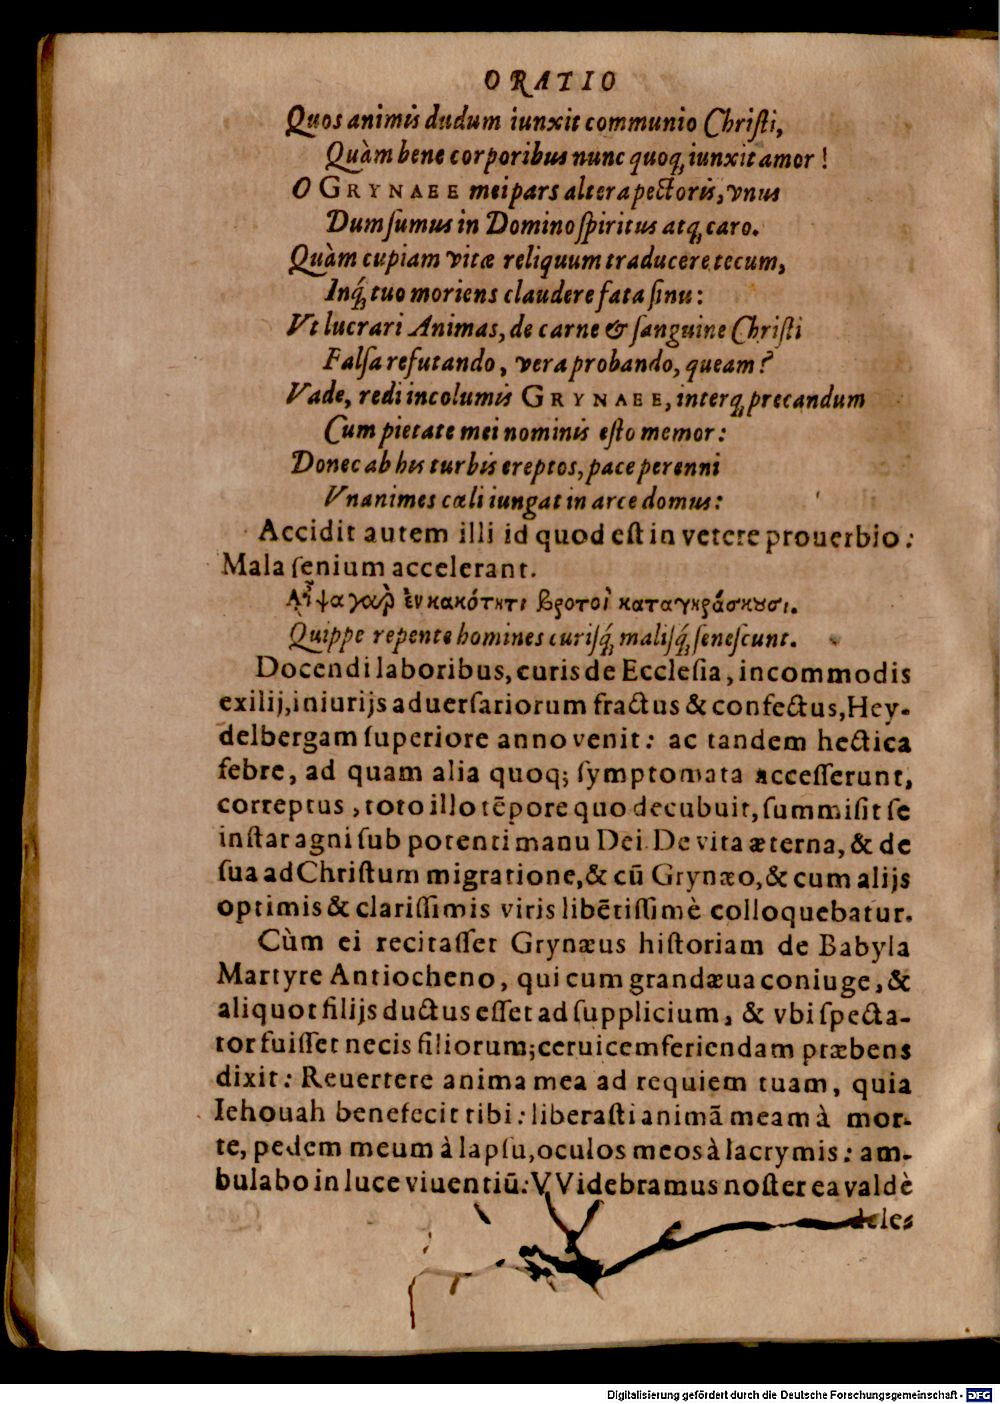 ORATIO
Quos animis dudum iunxit communio Chriſti,
Quàm bene corporibus nunc quoq; iunxit amor!
O GRYNAEE mei pars altera pectoris, vnus
Dum ſumus in Domino ſpiritus atq; caro.
Quàm cupiam vitæ reliquum traducere tecum,
Inq́; tuo moriens claudere fata ſinu:
Vt lucrari Animas, de carne & ſanguine Chriſti
Falſa refutando, vera probando, queam?
Vade, redi incolumis GRYNAEE, interq; precandum
Cum pietate mei nominis eſto memor:
Donec ab his turbis ereptos, pace perenni
Vnanimes cæli iungat in arce domus:
Accidit autem illi id quod eſt in vetere prouerbio:
Mala ſenium accelerant.
Αἶψα γὰρ ἐν κακότητι βροτοὶ καταγηράσκουσι.
Quippe repente homines curiſq́; maliſq́; ſeneſcunt.
Docendi laboribus, curis de Eccleſia, incommodis
exilij, iniurijs aduerſariorum fractus & confectus, Hey-
delbergam ſuperiore anno venit: ac tandem hectica
febre, ad quam alia quoq; ſymptomata acceſſerunt,
correptus, toto illo tẽpore quo decubuit, ſummiſit ſe
inſtar agni ſub potenti manu Dei. De vita æterna, & de
ſua ad Chriſtum migratione, & cũ Grynæo, & cum alijs
optimis & clariſſimis viris libẽtiſſimè colloquebatur.
Cùm ei recitaſſet Grynæus hiſtoriam de Babyla
Martyre Antiocheno, qui cum grandæua coniuge, &
aliquot filijs ductus eſſet ad ſupplicium, & vbi ſpecta-
tor fuiſſet necis filiorum; ceruicem feriendam præbens
dixit: Reuertere anima mea ad requiem tuam, quia
Iehouah benefecit tibi: liberaſti animã meam à mor-
te, pedem meum à lapſu, oculos meos à lacrymis: am-
bulabo in luce viuentiũ: VVidebramus noſter ea valdè
deles
Digitalisierung gefördert durch die Deutsche Forschungsgemeinschaft - DFG